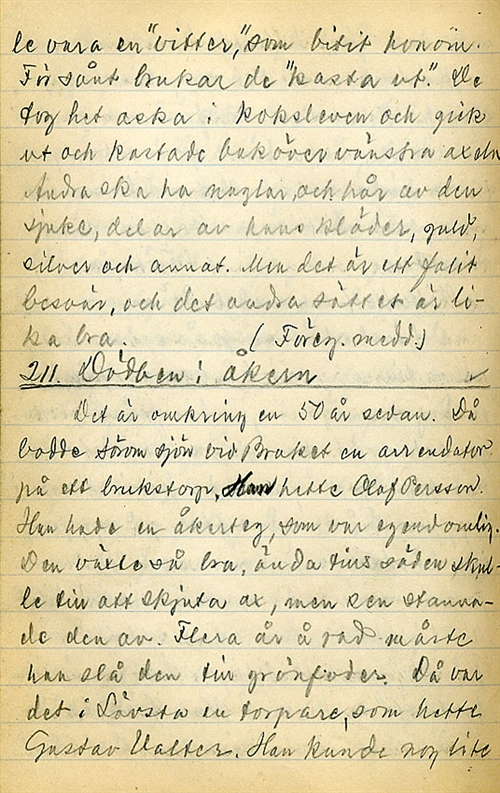 le vara en "vitter," som bitit honom.
För sånt brukar de "kasta ut". De
tog het aska i koksleven och gick
ut och kastade baköver vänstra axeln
Andra ska ha naglar, och hår av den
sjuke, delar av hans kläder, guld,
silver och annat. Men det är ett fasit
besvär, och det andra sättet är li-
ka bra. (Föreg. medd.)
211. Dödben i åkern
Det är omkring en 50 år sedan. Då
bodde söröm sjön vid Bruket en arrendator
på ett brukstorp, Han hette Olof Persson.
Han hade en åkerteg, som var egendomlig.
Den växte så bra, ända tins säden skul-
le till att skjuta ax, men sen stanna-
de den av. Flera år å rad måste
han slå den till grönfoder. Då var
det i Lövsta en torpare, som hette
Gustav Valter. Han kunde nog lite